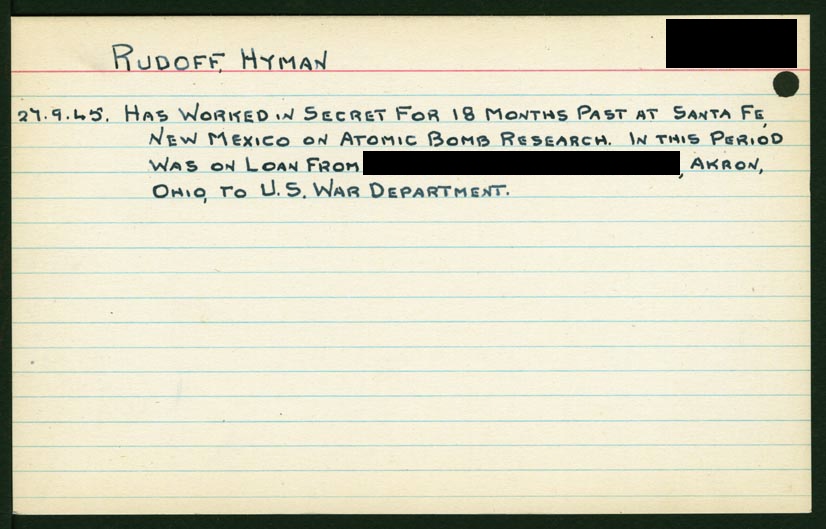 RUDOFF, HYMAN
27.9.45. HAS WORKED IN SECRET FOR 18 MONTHS PAST AT SANTA FE,
NEW MEXICO ON ATOMIC BOMB RESEARCH. IN THIS PERIOD
WAS ON LOAN FROM , AKRON,
OHIO, TO U.S. WAR DEPARTMENT.